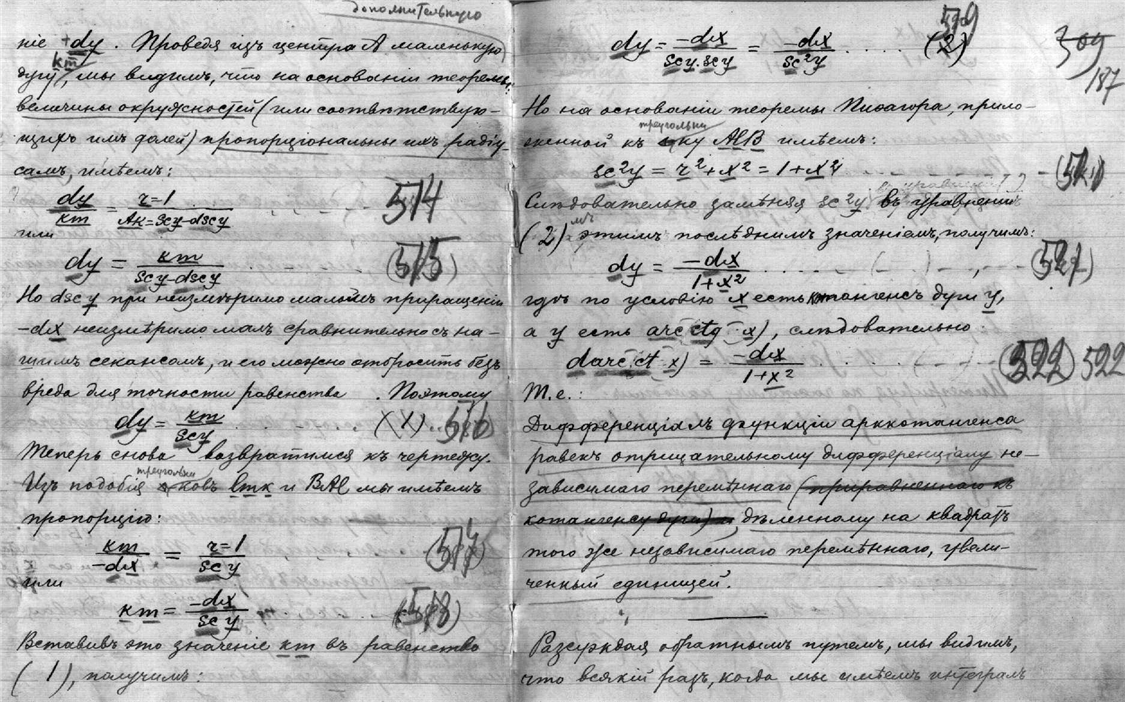 дополнительную
ніе +dy. Проведя изъ центра А маленькую
дугу km, мы видимъ, что на основаніи теоремы,
величины окружностей (или соотвѣтствую-
щихъ имъ долей) пропорціональны ихъ радіу-
самъ, имѣемъ:
dy/km = r=1/Ak=scy-dscy 514
или
dy = km/scy-dscy (515)
Но dscy при неизмѣримо маломъ приращеніи
-dx неизмѣримо малъ сравнительно съ на-
шимъ секансомъ, и его можно отбросить безъ
вреда для точности равенства. Поэтому
dy = km/scy (1) 516
Теперь снова возвратимся къ чертежу.
Изъ подобія треугольниковъ lmk и BAl мы имѣемъ
пропорцію:
km/-dx = r=1/scy (517)
или
km = -dx/scy (518)
Вставивъ это значеніе km въ равенство
(1), получимъ:
dy = -dx/scy.scy = -dx/sc²y .... (2) 519
187
Но на основаніи теоремы Пиѳагора, прило-
женной къ треугольнику AlB имѣемъ:
sc²y = r²+x² = 1+x²
Слѣдовательно замѣняя sc²y въ уравненіи
(2) этимъ послѣднимъ значеніемъ, получимъ:
dy = -dx/1+x² (521)
гдѣ по условію x есть котангенсъ дуги y,
а y есть arc(ctg x), слѣдовательно
darc(ct x) = -dx/1+x² (522) 522
Т.е.:
Дифференціалъ функціи арккотангенса
равенъ отрицательному дифференціалу не-
зависимаго перемѣннаго (приравненнаго къ
котангенсу дуги), дѣленному на квадратъ
того же независимаго перемѣннаго, увели-
ченный единицей.
Разсуждая обратнымъ путемъ, мы видимъ,
что всякій разъ, когда мы имѣемъ интегралъ